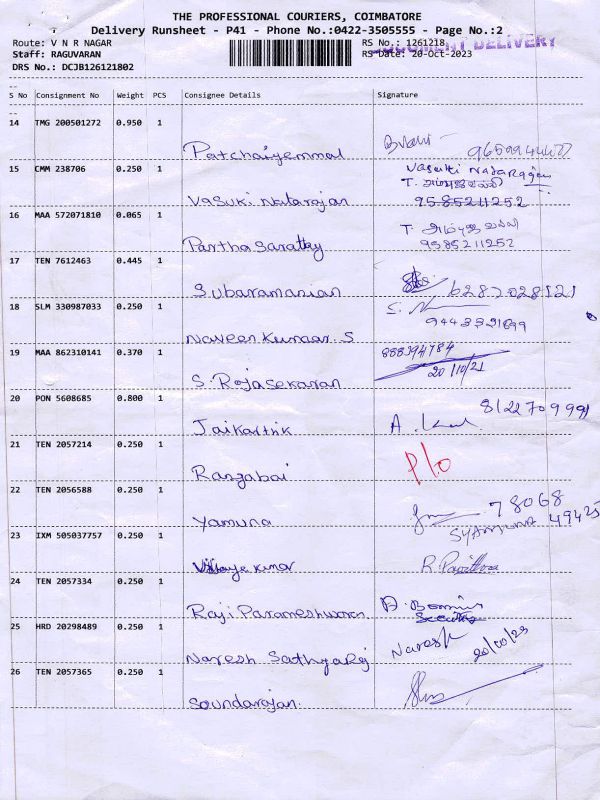 THE PROFESSIONAL COURIERS, COIMBATORE
Delivery Runsheet - P41 - Phone No.:0422-3505555 - Page No.:2
Route: V N R NAGAR RS No.: 1261218 DOCUMENT DELIVERY
Staff: RAGUVARAN RS Date: 20-Oct-2023
DRS No.: DCJB126121802
--
S No Consignment No Weight PCS Consignee Details Signature
--
14 TMG 200501272 0.950 1
Patchaiyammal
15 CMM 238706 0.250 1 Vasuki Natarajan
T.
Vasuki Natarajan 9585211252
16 MAA 572071810 0.065 1 T
Partha Sarathy 9585211252
17 TEN 7612463 0.445 1
Subaramanian 6287028121
18 SLM 330987033 0.250 1 S.
Naveen Kumaar. S
19 MAA 862310141 0.370 1
20/10/21
S. Rajasekaran
20 PON 5608685 0.800 1 8122709991
Jaikarthik A.
21 TEN 2057214 0.250 1 P/o
Rangabai
22 TEN 2056588 0.250 1 78068
Yamuna SYAMUNA 49425
23 IXM 505037757 0.250 1
Vijaye kumar R. Pavithra
24 TEN 2057334 0.250 1
Raji Parameshwaran
25 HRD 20298489 0.250 1 Naresh
Naresh Sathyaraj
26 TEN 2057365 0.250 1
Soundarajan.